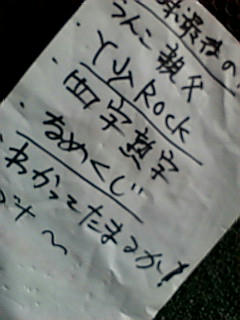 最後の
うんこ親父
YU Rock
四字熟字
なめくじ
わかってたまるか!